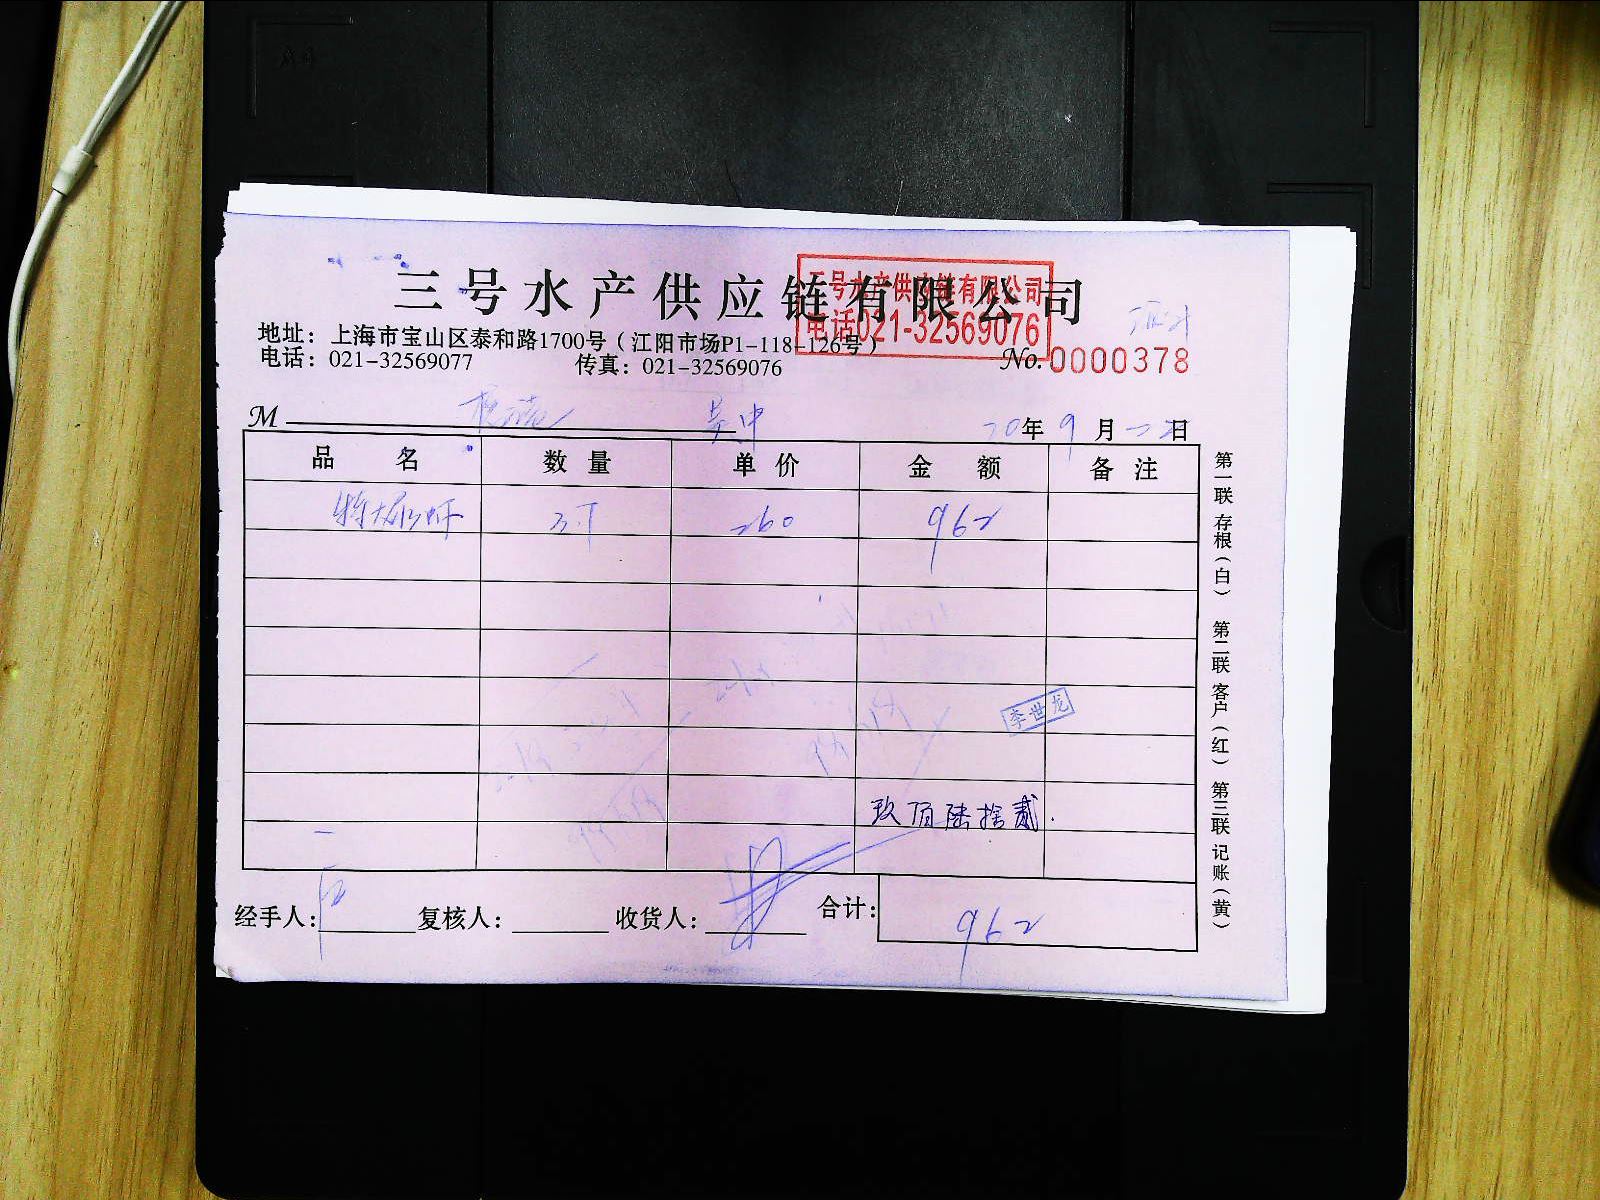 三号水产供应链有限公司
三号水产供应链有限公司
电话021-32569076
地址：上海市宝山区泰和路1700号（江阳市场P1-118-126号）
电话：021-32569077 传真：021-32569076
No.0000378
M 吴中 20年9月 日
品名 数量 单价 金额 备注
特大 虾 3.7 260 962
李世龙
玖佰陆拾贰.
经手人： 复核人： 收货人： 合计：962
第一联 存根（白） 第二联 客户（红） 第三联 记账（黄）